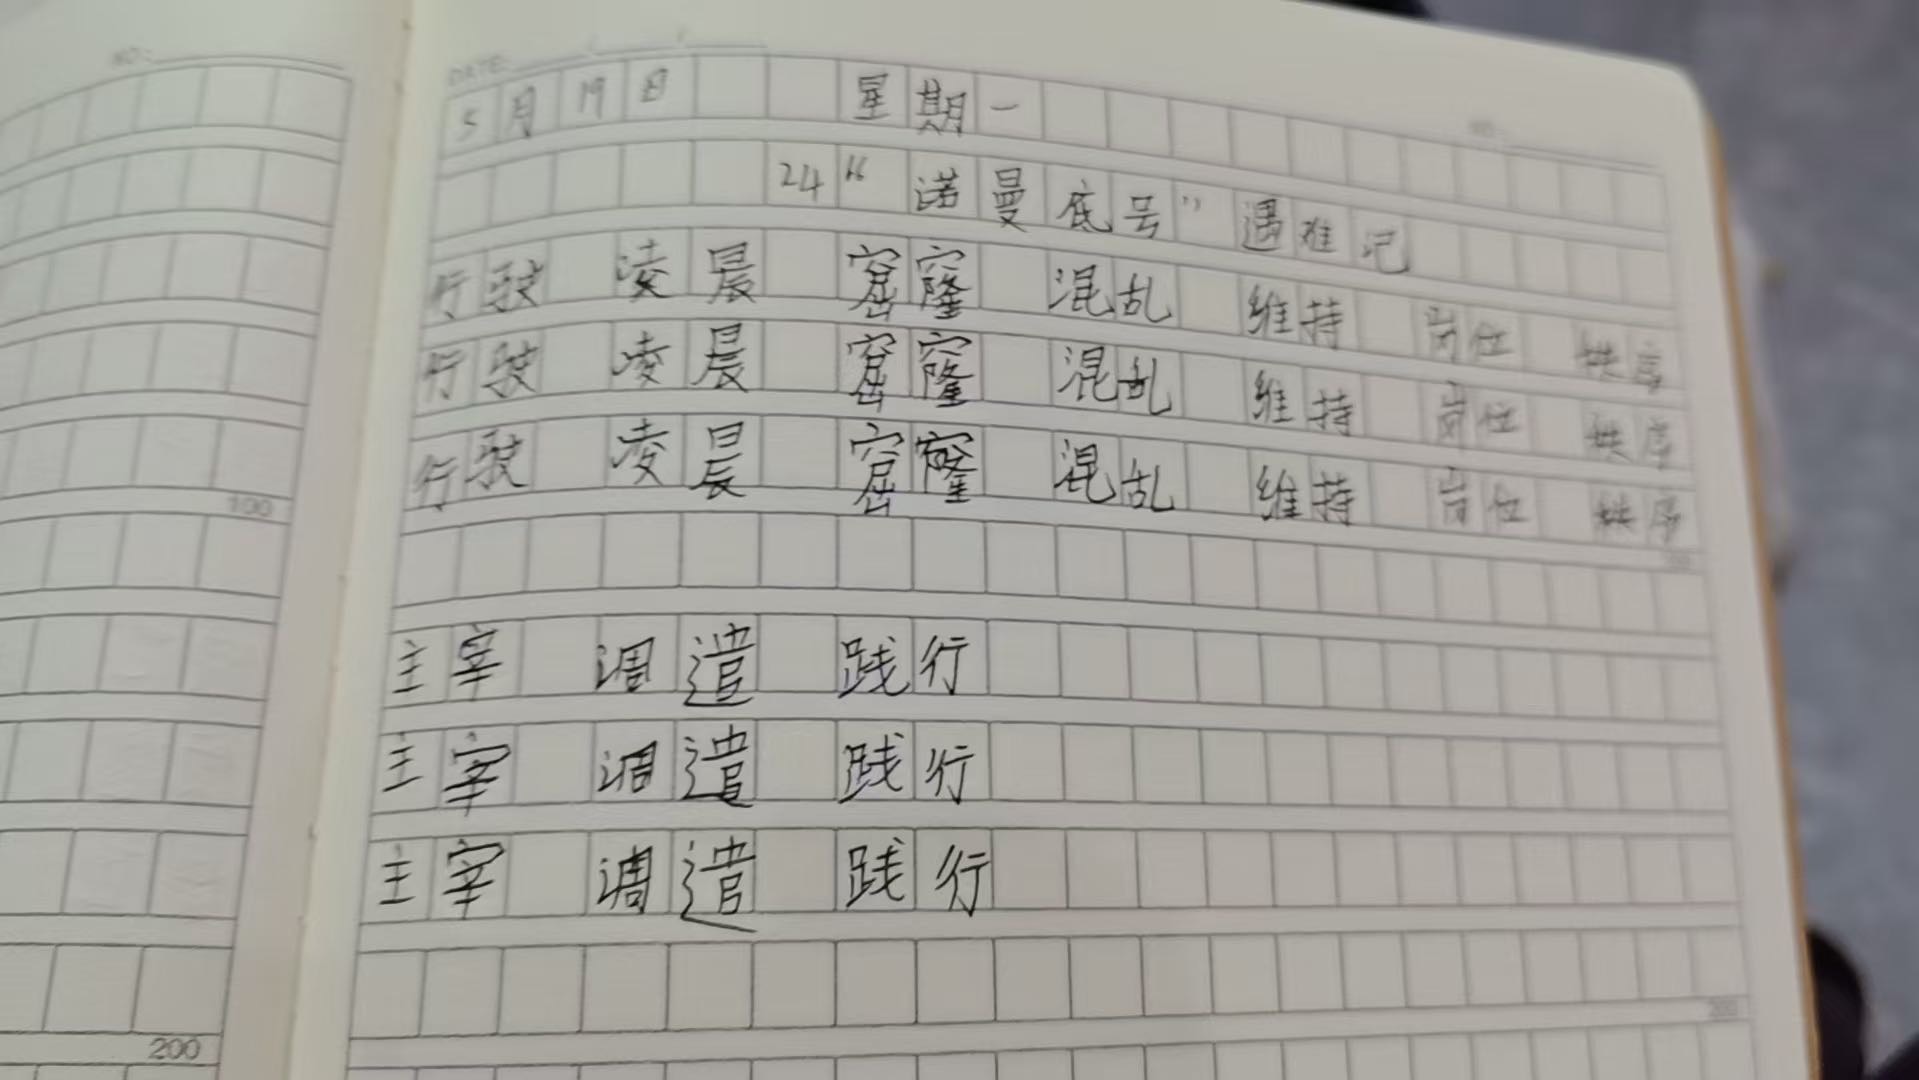 NO:
DATE:
5月19日 星期一
24“诺曼底号”遇难记
行驶 凌晨 窟窿 混乱 维持 岗位 秩序
行驶 凌晨 窟窿 混乱 维持 岗位 秩序
行驶 凌晨 窟窿 混乱 维持 岗位 秩序
100
主宰 调遣 践行
主宰 调遣 践行
主宰 调遣 践行
200
200